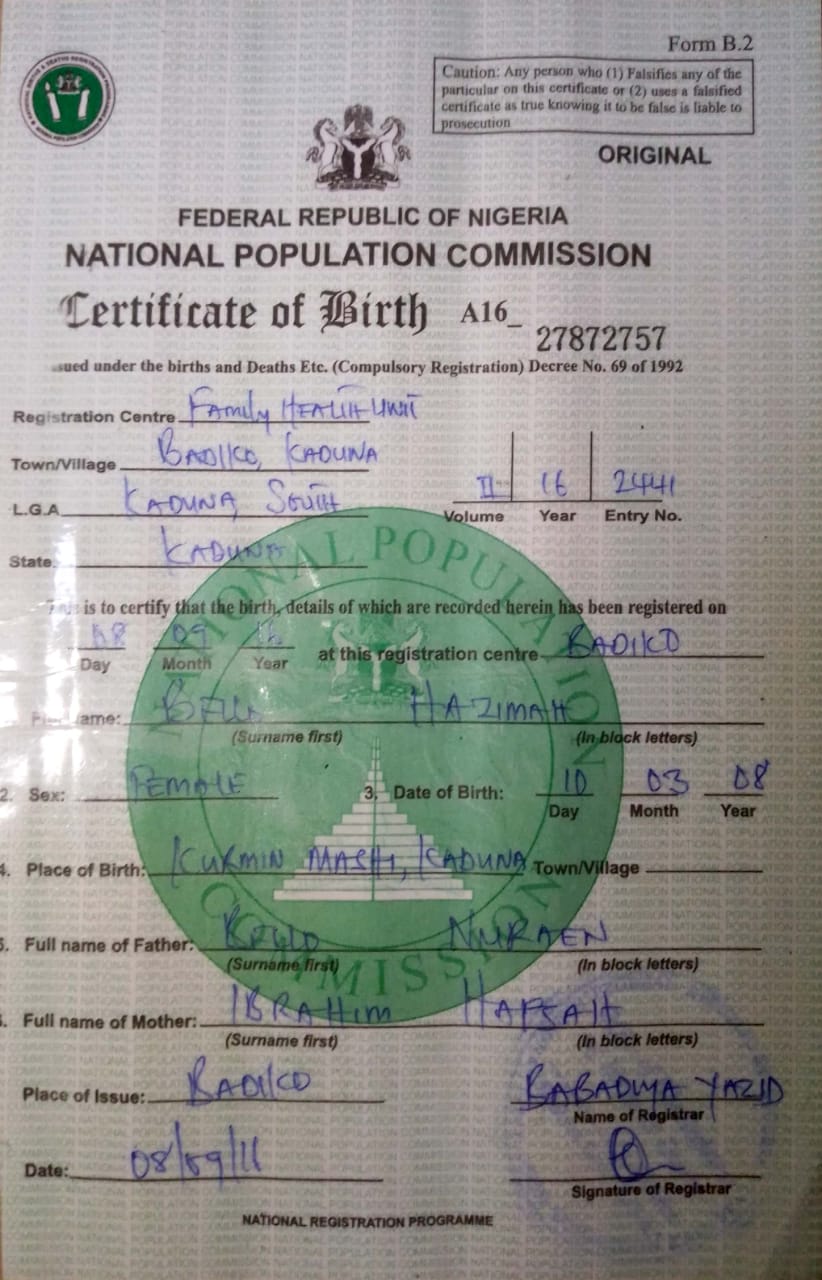 Form B.2
Caution: Any person who (1) Falsifies any of the
particular on this certificate or (2) uses a falsified
certificate as true knowing it to be false is liable to
prosecution
ORIGINAL
FEDERAL REPUBLIC OF NIGERIA
NATIONAL POPULATION COMMISSION
Certificate of Birth A16_ 27872757
sued under the births and Deaths Etc. (Compulsory Registration) Decree No. 69 of 1992
Registration Centre FAMILY HEALTH UNIT
Town/Village BADIKO, KADUNA
L.G.A KADUNA SOUTH
II 16 2441
Volume Year Entry No.
State KADUNA
is to certify that the birth, details of which are recorded herein has been registered on
08 09 16 at this registration centre BADIKO
Day Month Year
Name: BELLO HAZIMAH
(Surname first) (In block letters)
2. Sex: FEMALE 3. Date of Birth: 10 03 08
Day Month Year
4. Place of Birth: KURMIN MASHI, KADUNA Town/Village
5. Full name of Father: BELLO NURAEN
(Surname first) (In block letters)
Full name of Mother: IBRAHIM HAFSAH
(Surname first) (In block letters)
Place of Issue: BADIKO BABADUYA YAZID
Name of Registrar
Date: 08/09/16
Signature of Registrar
NATIONAL REGISTRATION PROGRAMME
NATIONAL POPULATION COMMISSION